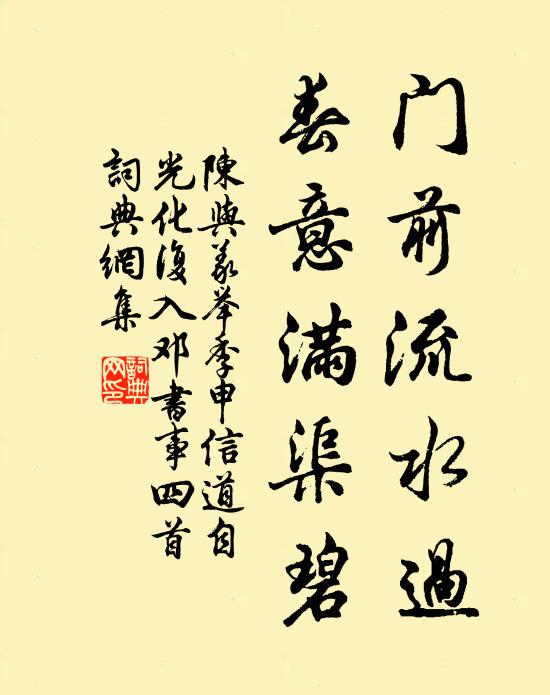 门前流水過
春意满渠碧
陳與義举季申信道自
光化復入邓書事四首
詞典網集
詞典网印